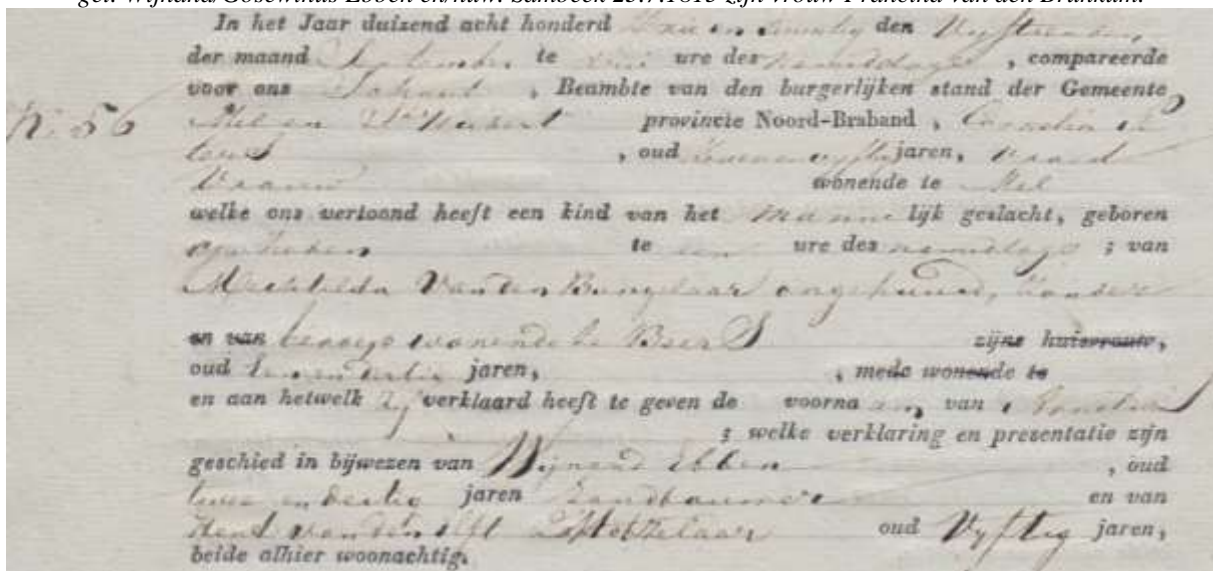 geh. Wijnand/Gosewinus Ebben en/huw. Sambeek 25.7.1815 zijn vrouw Francina van den
In het Jaar duizend acht honderd drie en twintig den Vyftienden
der maand September te ure des namiddags , compareerde
voor ons , Beambte van den burgerlijken stand der Gemeente
N. 56 Mel en provincie Noord-Braband , Cornelia
, oud jaren, vroed
Vrouw wonende te Mel
welke ons vertoond heeft een kind van het Manne lijk geslacht, geboren
op heden te een ure des namiddags ; van
Mechtilda Van den ongehuwd, zonder
en van beroep wonende te Beers zijne huisvrouw,
oud jaren, , mede wonende te
en aan hetwelk zy verklaard heeft te geven de voorna am van Cornelis
; welke verklaring en presentatie zijn
geschied in bijwezen van Wijnand Ebben , oud
twee en dertig jaren Landbouwer en van
van den oud Vyftig jaren,
beide alhier woonachtig.